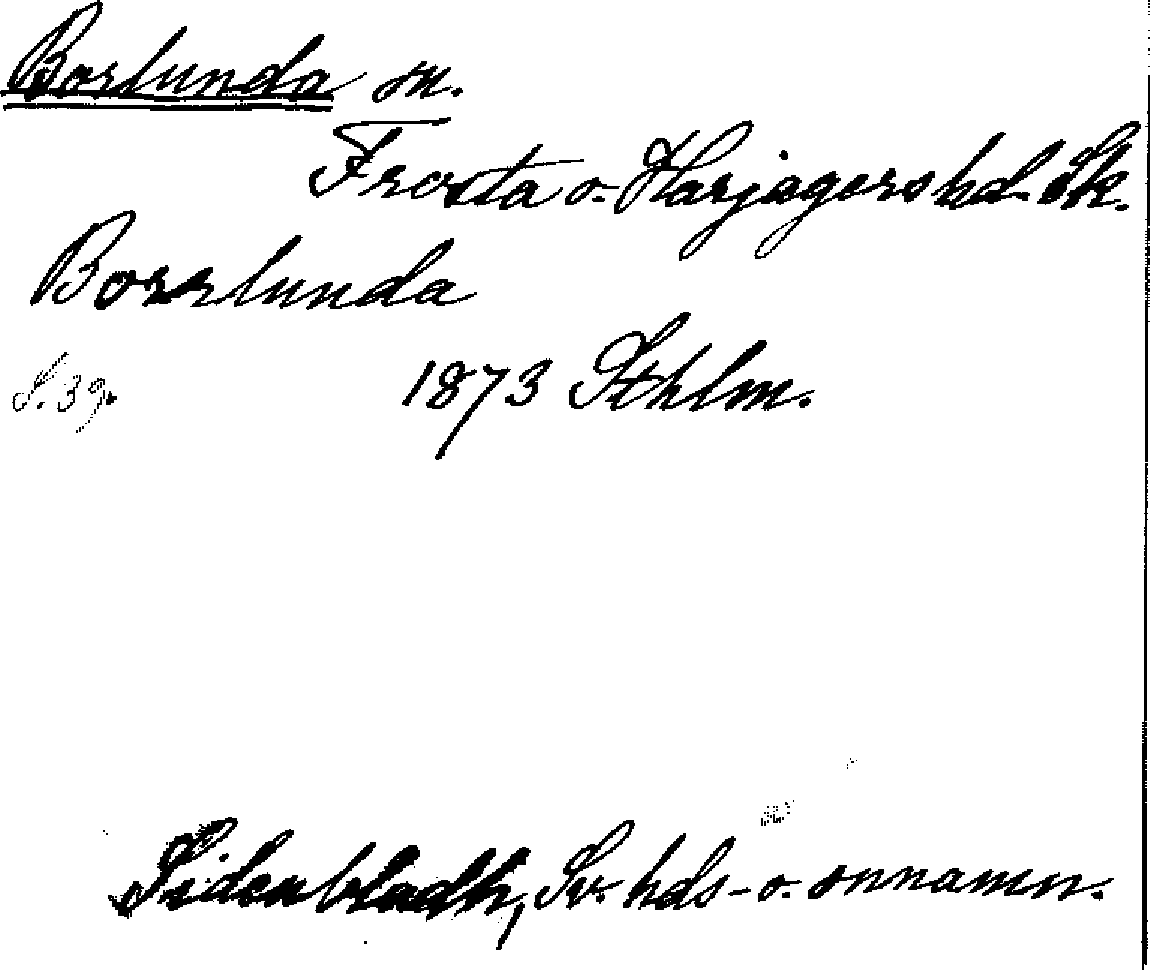 Borlunda sn.
Frosta o. Harjagers hd. Sk.
Borrlunda
S. 39. 1873 Sthlm.
Sidenbladh, Sv. hds- o. snnamn.